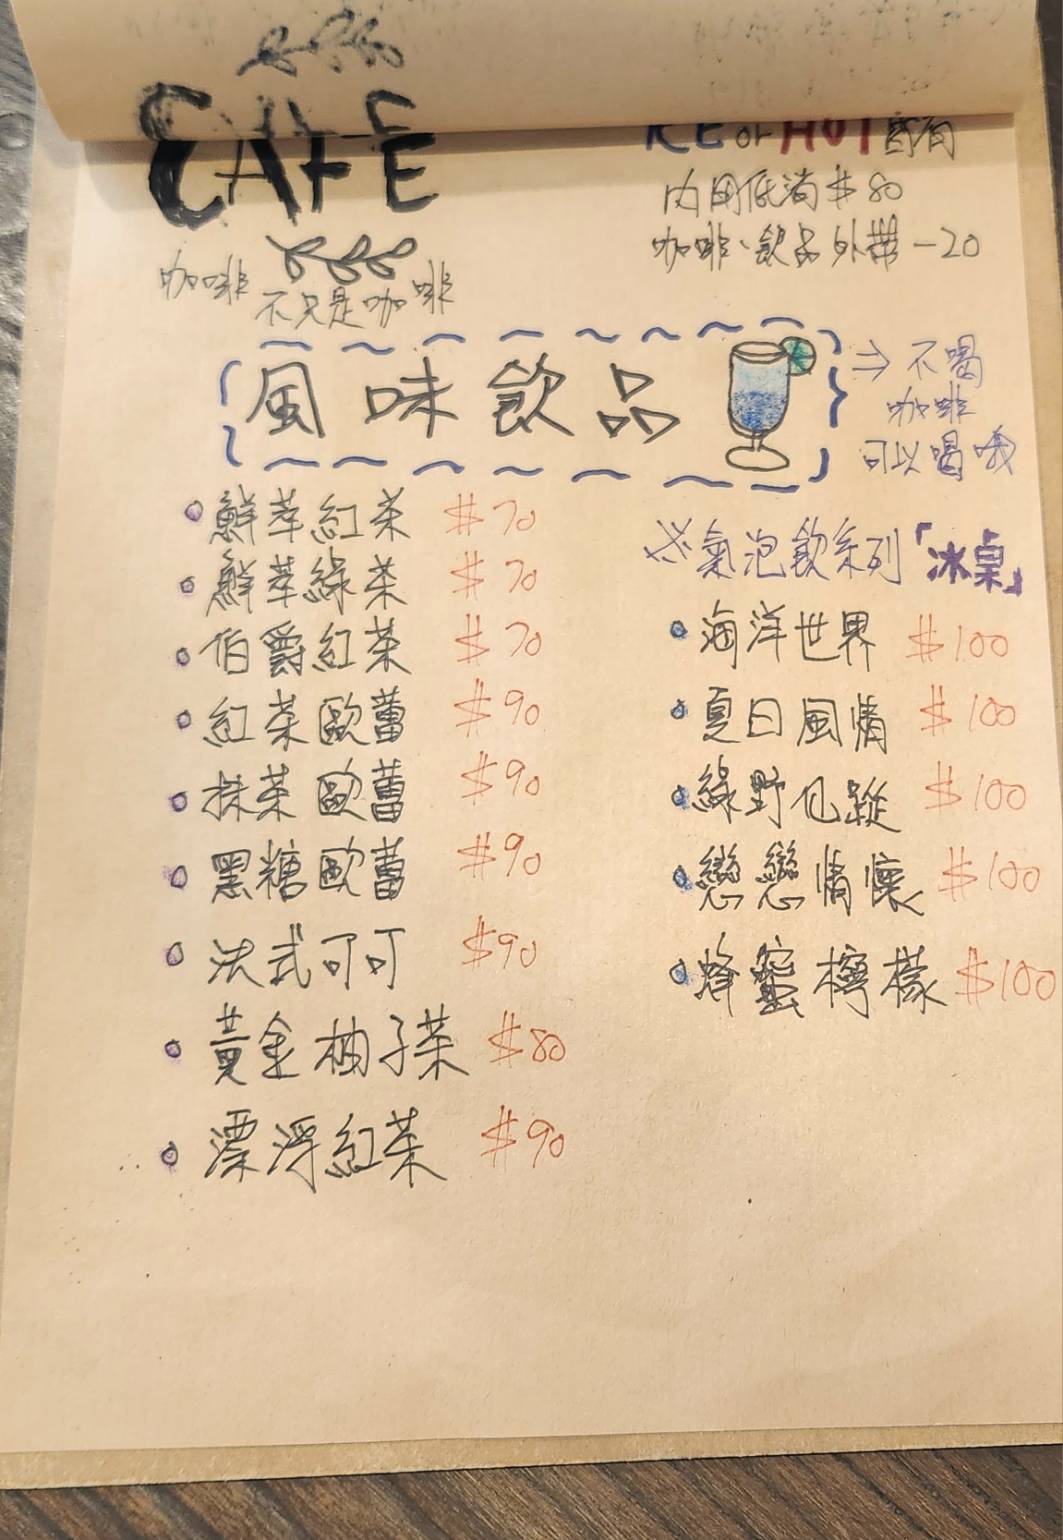 CAFE
ICE or HOT 皆有
內用低消$80
咖啡、飲品外帶-20
咖啡 不只是咖啡
風味飲品
⇒ 不喝
咖啡
可以喝哦
鮮萃紅茶 $70
鮮萃綠茶 $70
伯爵紅茶 $70
紅茶歐蕾 $90
抹茶歐蕾 $90
黑糖歐蕾 $90
法式可可 $90
黃金柚子茶 $80
漂浮紅茶 $90
※氣泡飲系列「冰桌」
海洋世界 $100
夏日風情 $100
綠野仙蹤 $100
戀戀情懷 $100
蜂蜜檸檬 $100